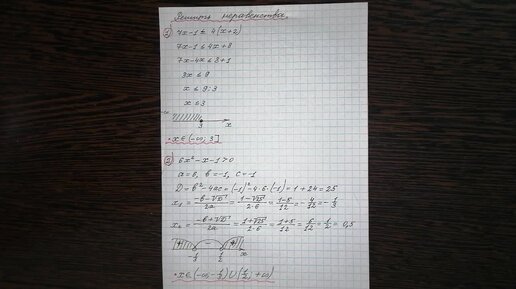 Решить неравенства.
1) 7x-1 ≤ 4(x+2)
7x-1 ≤ 4x+8
7x-4x ≤ 8+1
3x ≤ 9
x ≤ 9:3
x ≤ 3
-∞ 3 x
• x ∈ (-∞; 3]
2) 6x²-x-1>0
a=6, b=-1, c=-1
D = b²-4ac = (-1)²-4·6·(-1) = 1+24 = 25
x₁ = (-b-√D)/2a = (1-√25)/2·6 = (1-5)/12 = -4/12 = -1/3
x₂ = (-b+√D)/2a = (1+√25)/2·6 = (1+5)/12 = 6/12 = 1/2 = 0,5
+ - +
-1/3 1/2 x
• x ∈ (-∞; -1/3) ∪ (1/2; +∞)